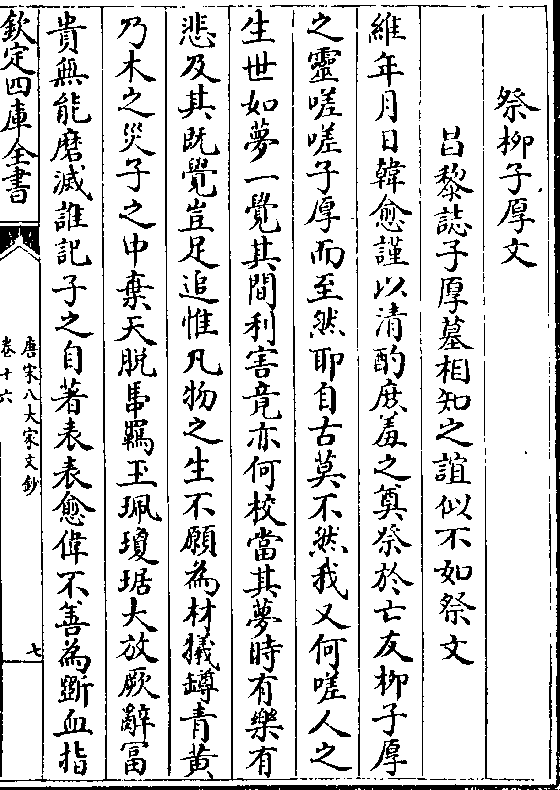 祭柳子厚文
昌黎誌子厚墓相知之誼似不如祭文
維年月日韓愈謹以清酌庶羞之奠祭於亡友柳子厚
之靈嗟嗟子厚而至然耶自古莫不然我又何嗟人之
生世如夢一覺其間利害竟亦何校當其夢時有樂有
悲及其既覺豈足追惟凡物之生不願為材犧罇青黃
乃木之災子之中棄天脫馽羈玉珮瓊琚大放厥辭富
貴無能磨滅誰記子之自著表表愈偉不善為斵血指
欽定四庫全書
唐宋八大家文鈔
卷十六
七